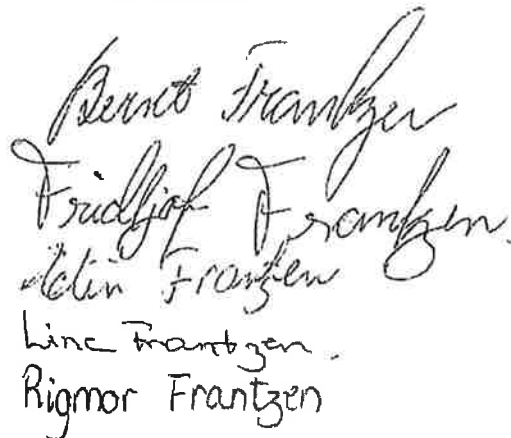 Bernt Frantzen
Fridtjof Frantzen.
Frantzen
Line Frantzen.
Rigmor Frantzen